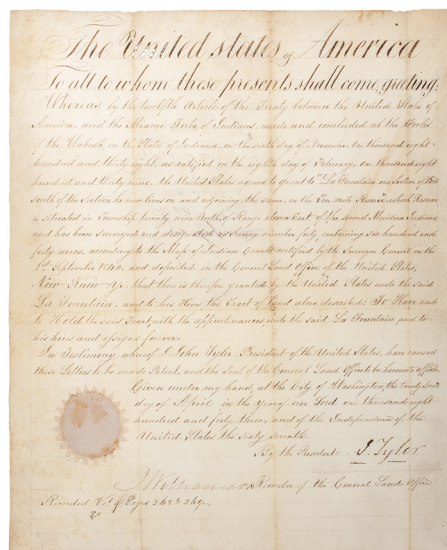 The United States of America
To all to whom these presents shall come, greeting:
Whereas by the twelfth Article of the Treaty between the United States of
America, and the Miami Tribe of Indians, made and concluded at the Forks
of the Wabash in the State of Indiana, on the sixth day of November, one thousand eight
hundred and thirty eight, as ratified on the eighth day of February, one thousand eight
hundred and thirty nine, the United States agreed to grant to La Fountain, one Section of
South of the Section he now lives on and adjoining the same, on the Ten mile Reserve, which Reserve
is situated in Township twenty nine North, of Range eleven East of the second Meridian Indiana
and has been surveyed and designated as Survey number forty, containing six hundred and
forty acres, according to the Map of Indian certified by the Surveyor General on the
1st September 1840, and deposited in the General Land Office of the United States,
Now Know Ye, that there is therefore granted by the United States unto the said
La Fountain, and to his Heirs the Tract of Land above described: To Have and
to Hold the said Tract, with the appurtenances unto the said La Fountain and to
his heirs and assigns forever.
In Testimony whereof I, John Tyler, President of the United States, have caused
these Letters to be made Patent, and the Seal of the General Land Office to be hereunto affixed.
Given under my hand, at the City of Washington, the twenty
day of April in the Year of our Lord one thousand eight
hundred and forty three, and of the Independence of the
United States the sixty seventh
By the President J. Tyler
Recorder of the General Land Office
Recorded Vol 9 Pages 268 & 269